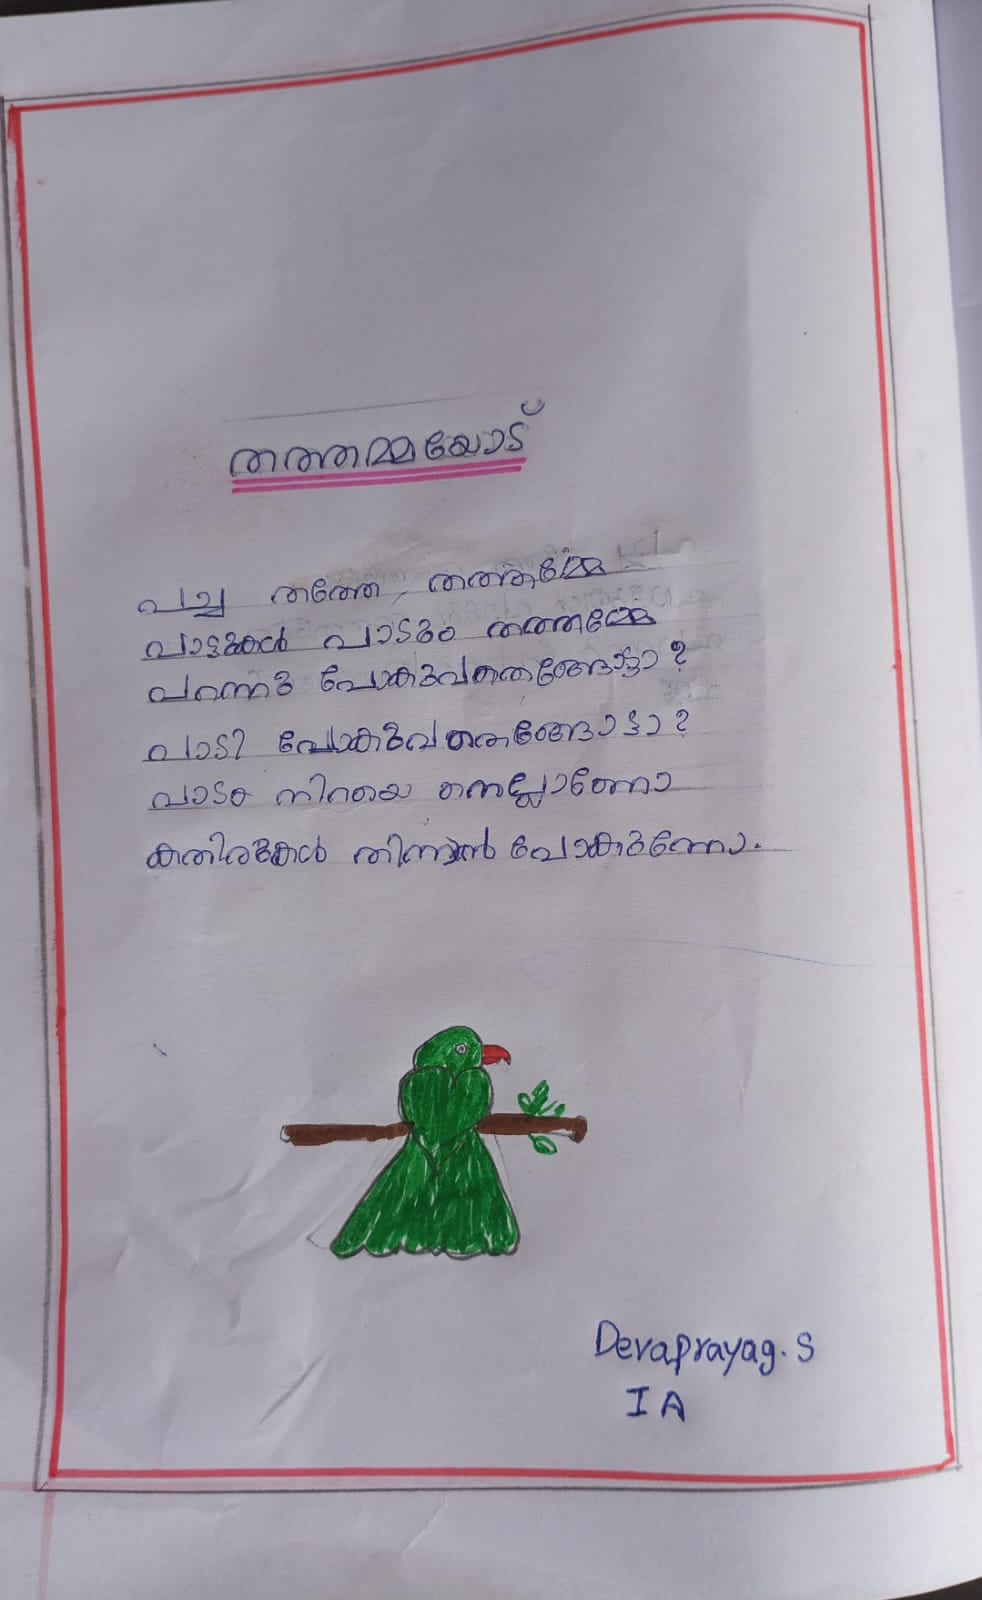 തത്തമ്മയോട്
പച്ച തത്തേ, തത്തമ്മേ
പാട്ടുകൾ പാടും തത്തമ്മേ
പറന്നു പോകുവതെങ്ങോട്ടാ?
പാടി പോകുവതെങ്ങോട്ടാ?
പാടം നിറയെ നെല്ലാണോ
കതിരുകൾ തിന്നാൻ പോകുന്നോ.
Devaprayag. S
I A